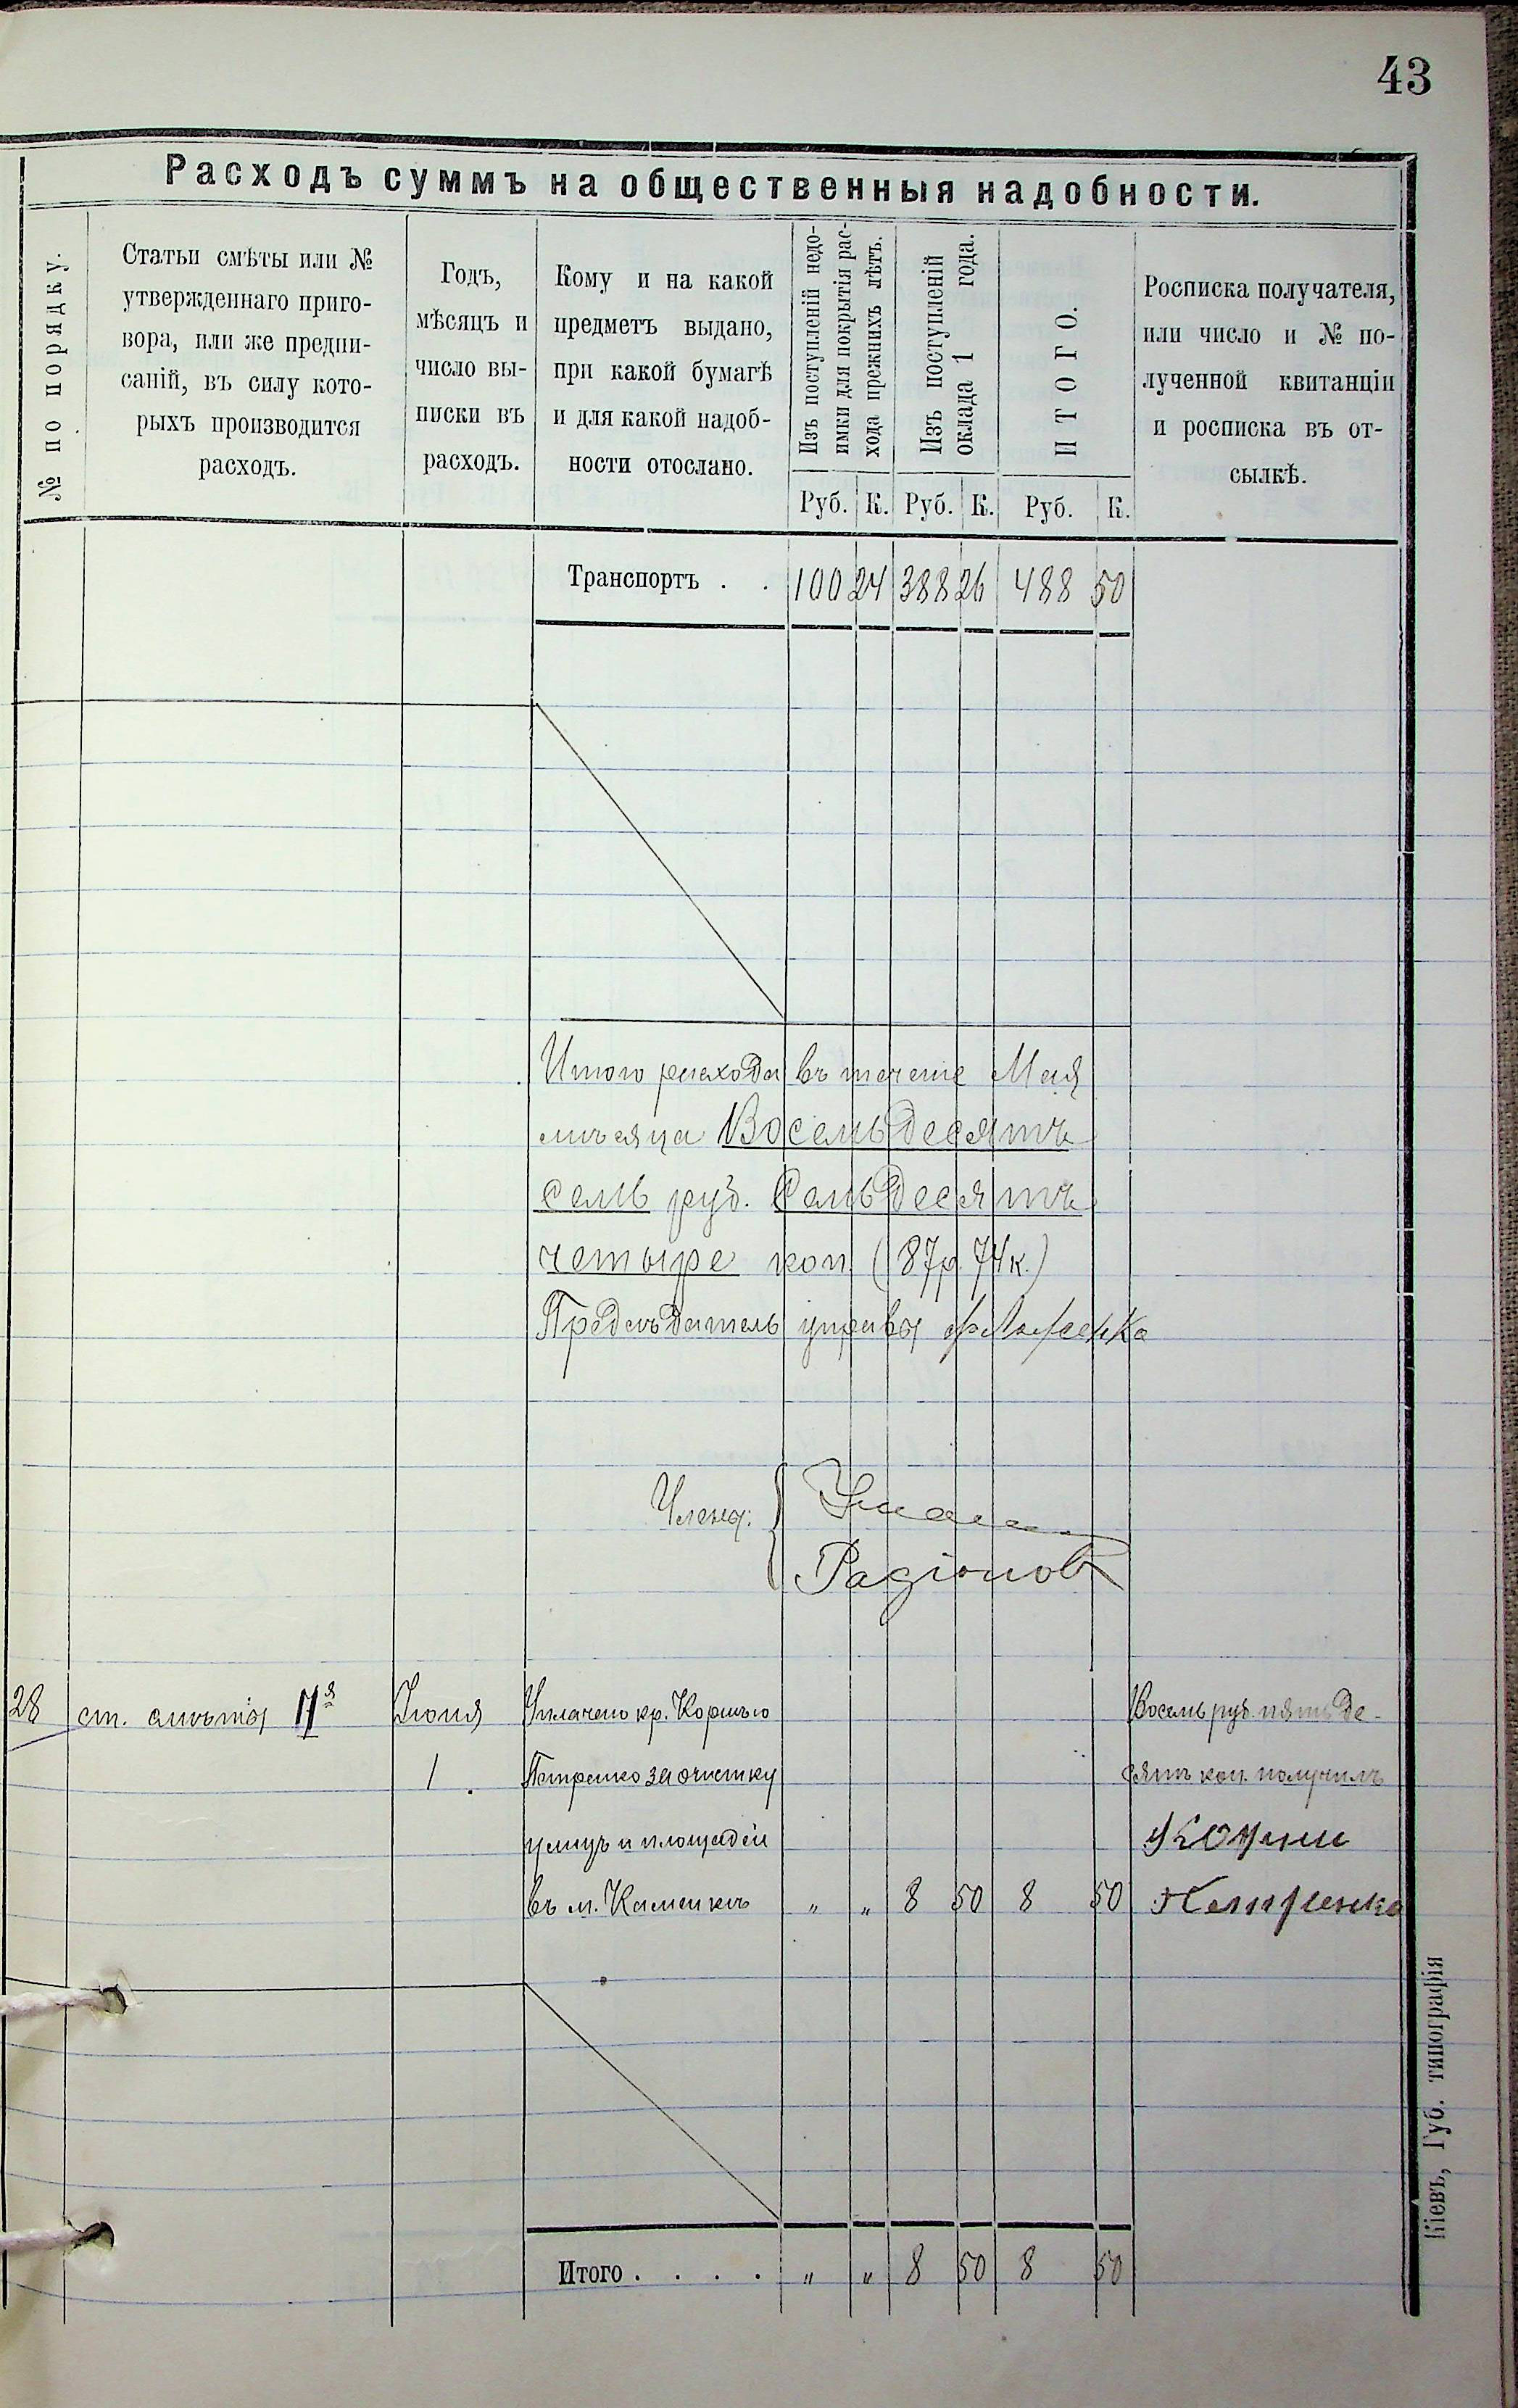 43
Расходъ суммъ на общественныя надобности.
№ по порядку.
Статьи смѣты или №
утвержденнаго приго-
вора, или же предпи-
саній, въ силу кото-
рыхъ производится
расходъ.
Годъ,
мѣсяцъ и
число вы-
писки въ
расходъ.
Кому и на какой
предметъ выдано,
при какой бумагѣ
и для какой надоб-
ности отослано.
Изъ поступленій недо-
имки для покрытія рас-
хода прежнихъ лѣтъ.
Изъ поступленій
оклада 1 года.
ИТОГО.
Росписка получателя,
или число и № по-
лученной квитанціи
и росписка въ от-
сылкѣ.
Руб. К. Руб. К. Руб. К.
Транспортъ . . 100 24 388 26 488 50
Итого расхода въ течение Мая
мѣсяца Восемьдесятъ
семь руб. Семьдесятъ
четыре коп. (87р. 74к.)
Предсѣдатель управы
Члены:
Радіонов
28 ст. смѣты 17я Іюня Уплачено кр. Корнѣю Восемь руб. пятьде-
1 Петренко за очистку сятъ коп. получилъ
улицъ и площадей
въ м. Каменкѣ „ „ 8 50 8 50 Петренко
Итого . . . . „ „ 8 50 8 50
Кіевъ, Губ. типографія